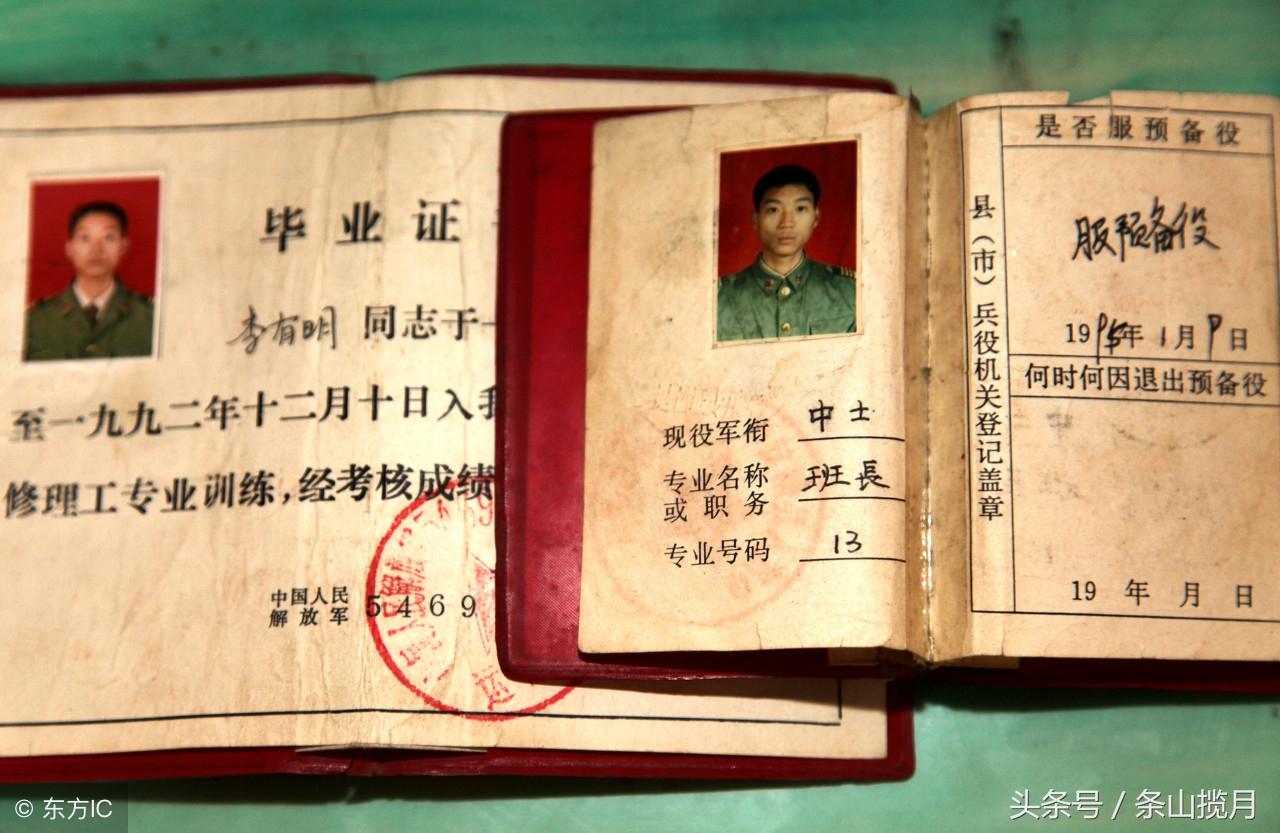 毕业证
李有明 同志于一
至一九九二年十二月十日入我
修理工专业训练，经考核成绩
中国人民
解放军 5469
现役军衔 中士
专业名称
或职务 班長
专业号码 13
县（市）兵役机关登记盖章
是否服预备役
服预备役
1995年1月9日
何时何因退出预备役
19 年 月 日
© 东方IC
头条号 / 条山揽月